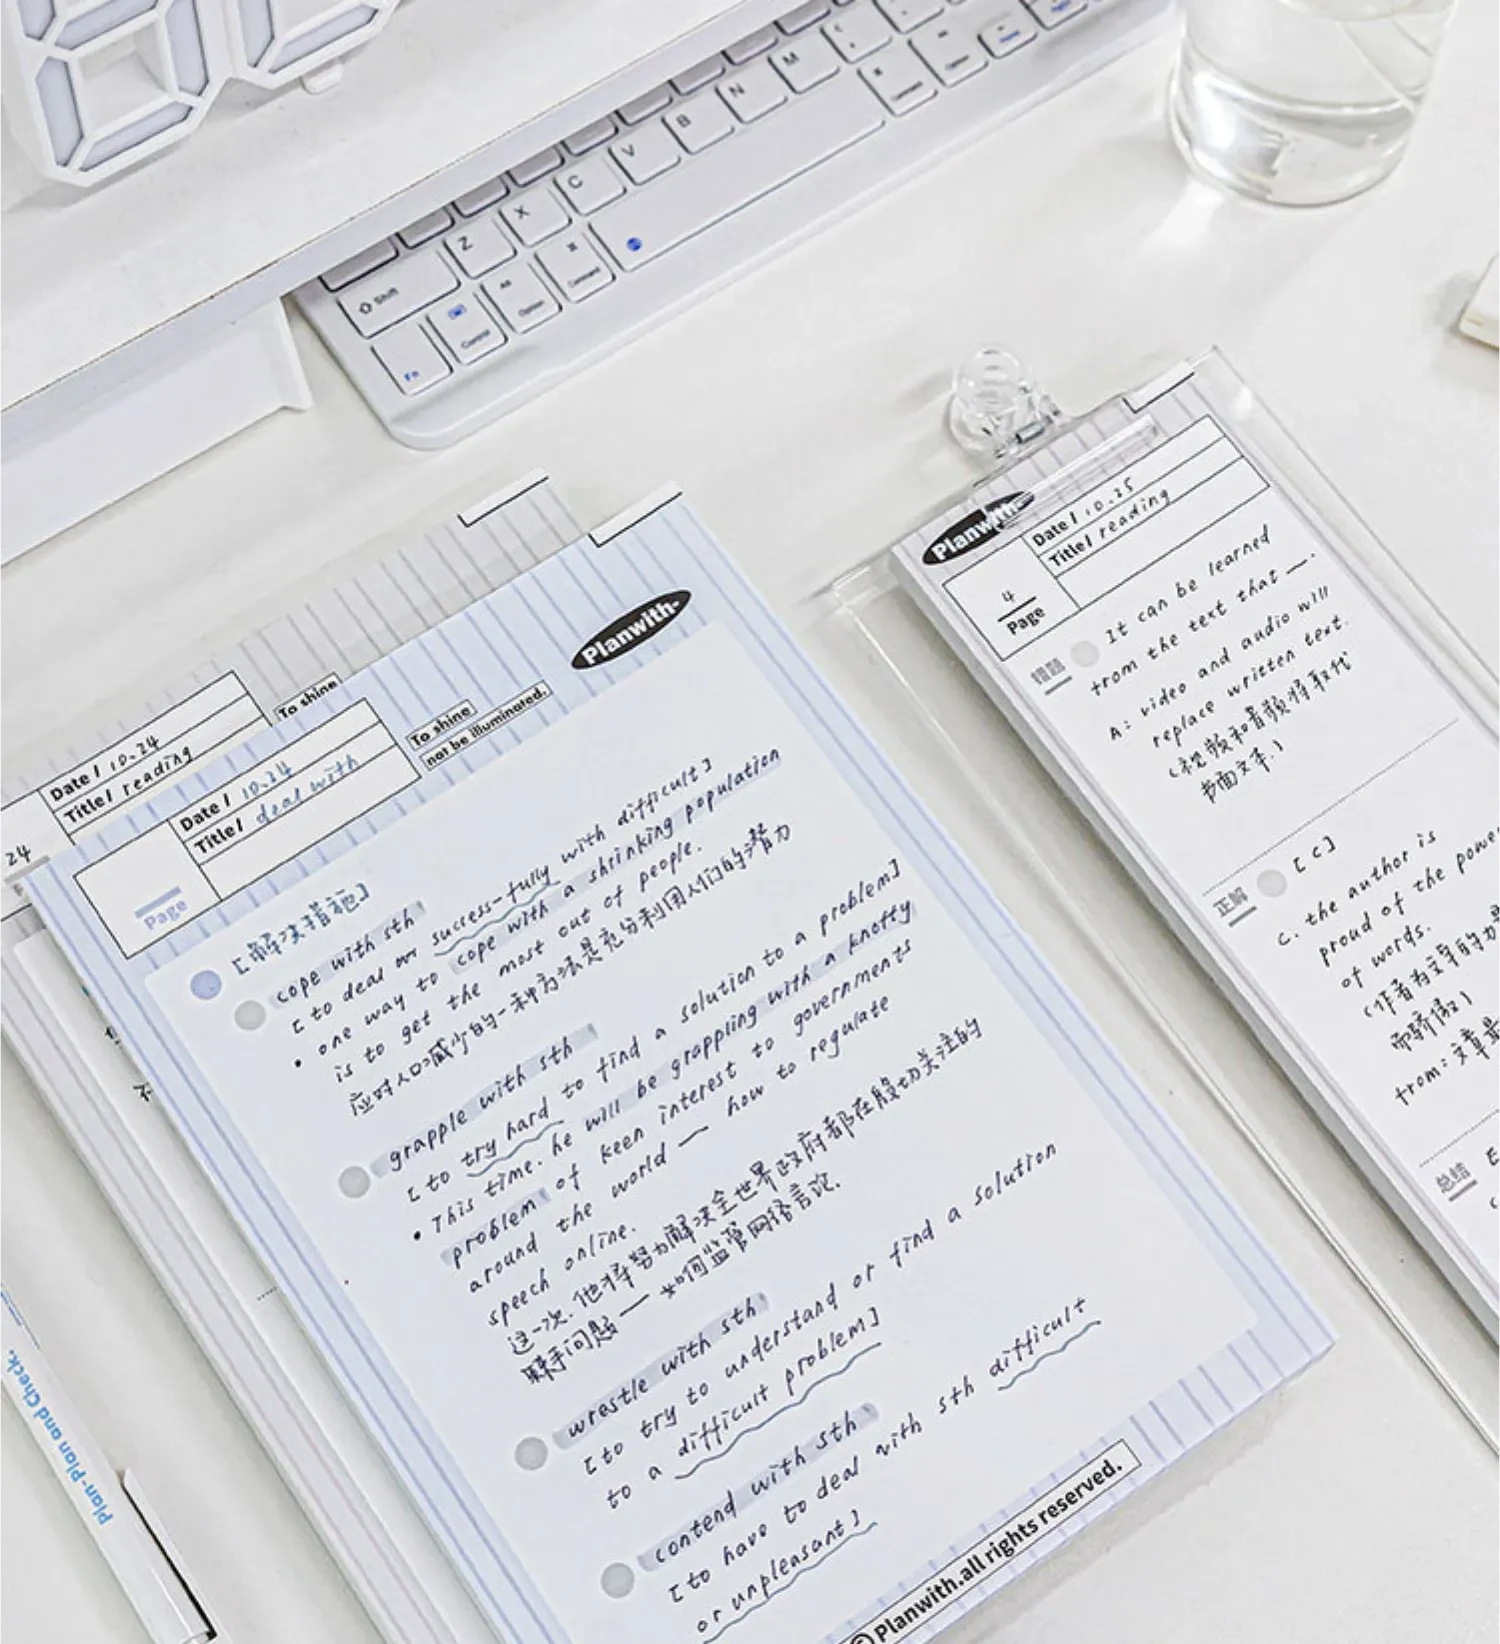 Shift
Z
X
C
V
B
N
M
Fn
Control
Option
Command
Planwith-
Date / 10.24
Title / reading
To shine
24
Planwith-
Date / 10.24
Title / deal with
Page
To shine
not be illuminated.
[解决措施]
cope with sth
[to deal success-fully with difficult]
• one way to cope with a shrinking population
is to get the most out of people.
应对人口减少的一种方法是充分利用人们的潜力
grapple with sth
[to try hard to find a solution to a problem]
• This time. he will be grappling with a knotty
problem of keen interest to governments
around the world — how to regulate
speech online.
这一次.他将努力解决全世界政府都在殷切关注的
棘手问题 — 如何监管网络言论.
wrestle with sth
[to try to understand or find a solution
to a difficult problem]
contend with sth
[to have to deal with sth difficult
or unpleasant]
© Planwith.all rights reserved.
Date / 10.25
Title / reading
4
Page
错题
It can be learned
from the text that —.
A: video and audio will
replace written text.
(视频和音频将取代
书面文本.)
正解
[C]
C. the author is
proud of the power
of words.
(作者为文章的力量
而骄傲)
from: 文章最
总结
E
Plan-Plan and Check.